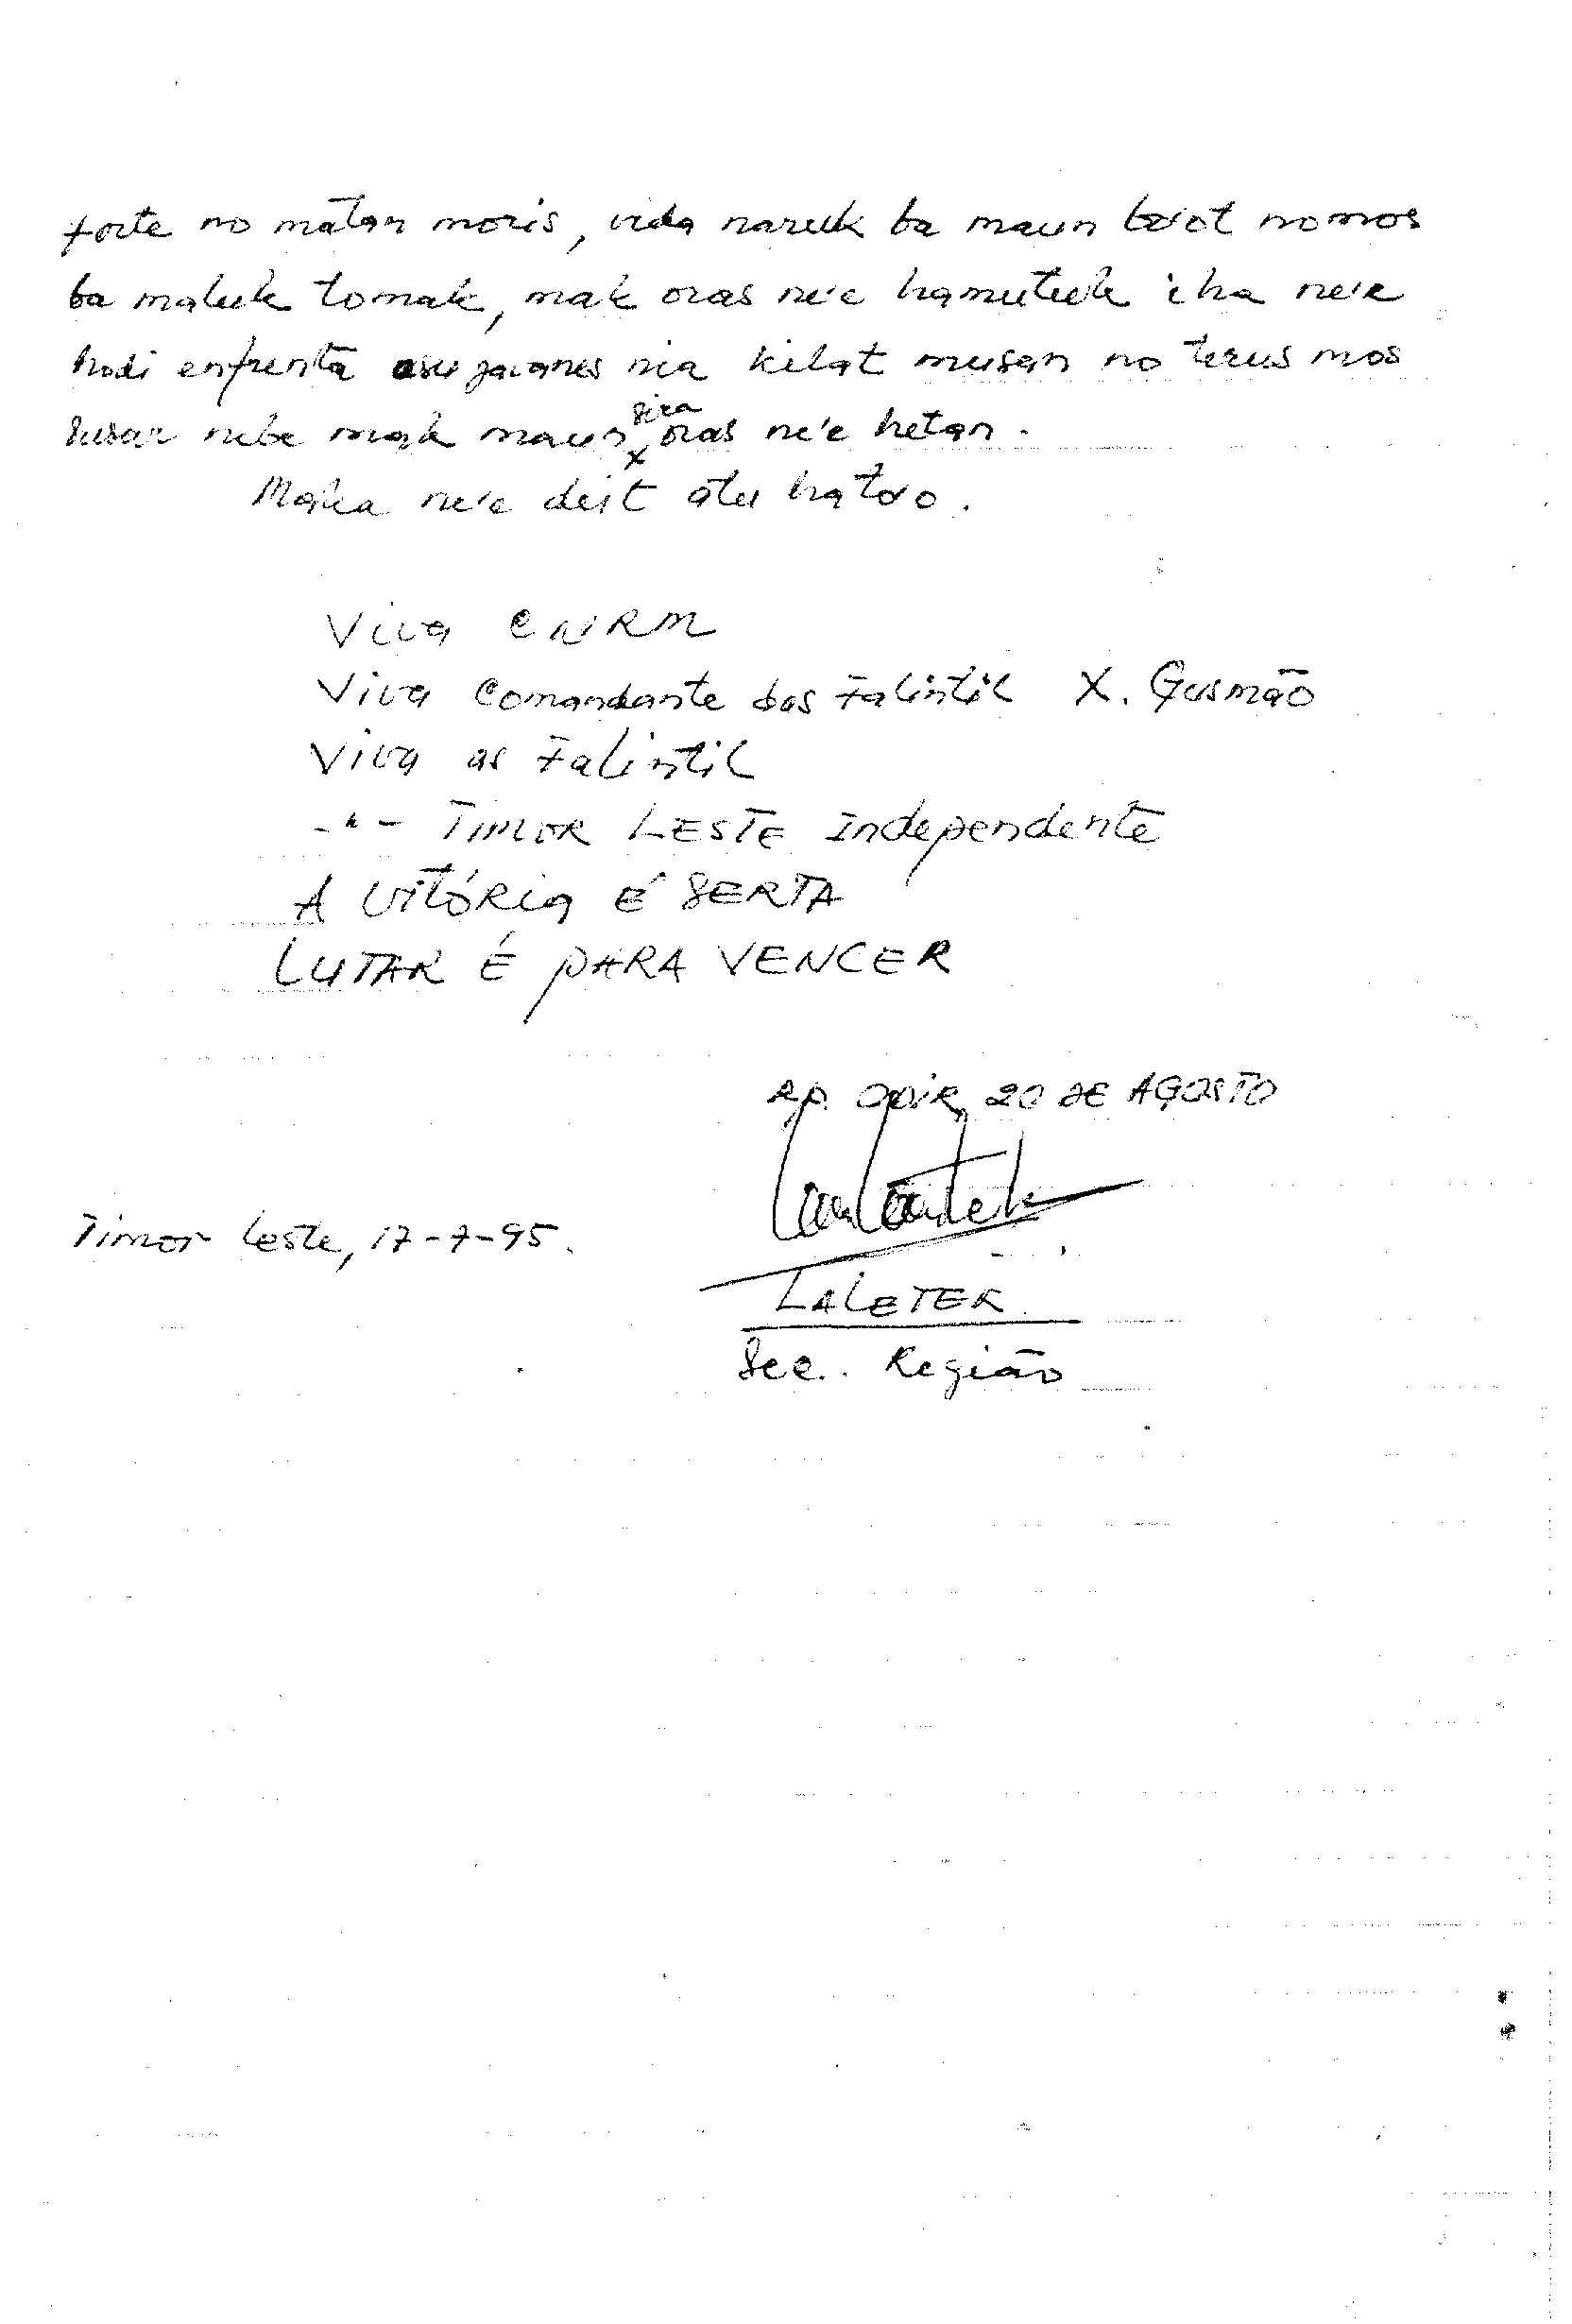 forte no matan moris, vida naruk ba maun boot nomos
ba maluk tomak, mak oras ne'e hamutuk iha ne'e
hodi enfrenta asu javanes nia kilat musan no terus mos
susar nebe mak maun sira oras ne'e hetan.
Maka ne'e deit atu hatoo.
Viva CNRM
Viva Comandante das Falintil X. Gusmão
Viva as Falintil
-"- TIMOR LESTE Independente
A VITÓRIA É SERTA
LUTAR É PARA VENCER
AP. 20 DE AGOSTO
Timor Leste, 17-7-95.
LALETEK
Sec. Região